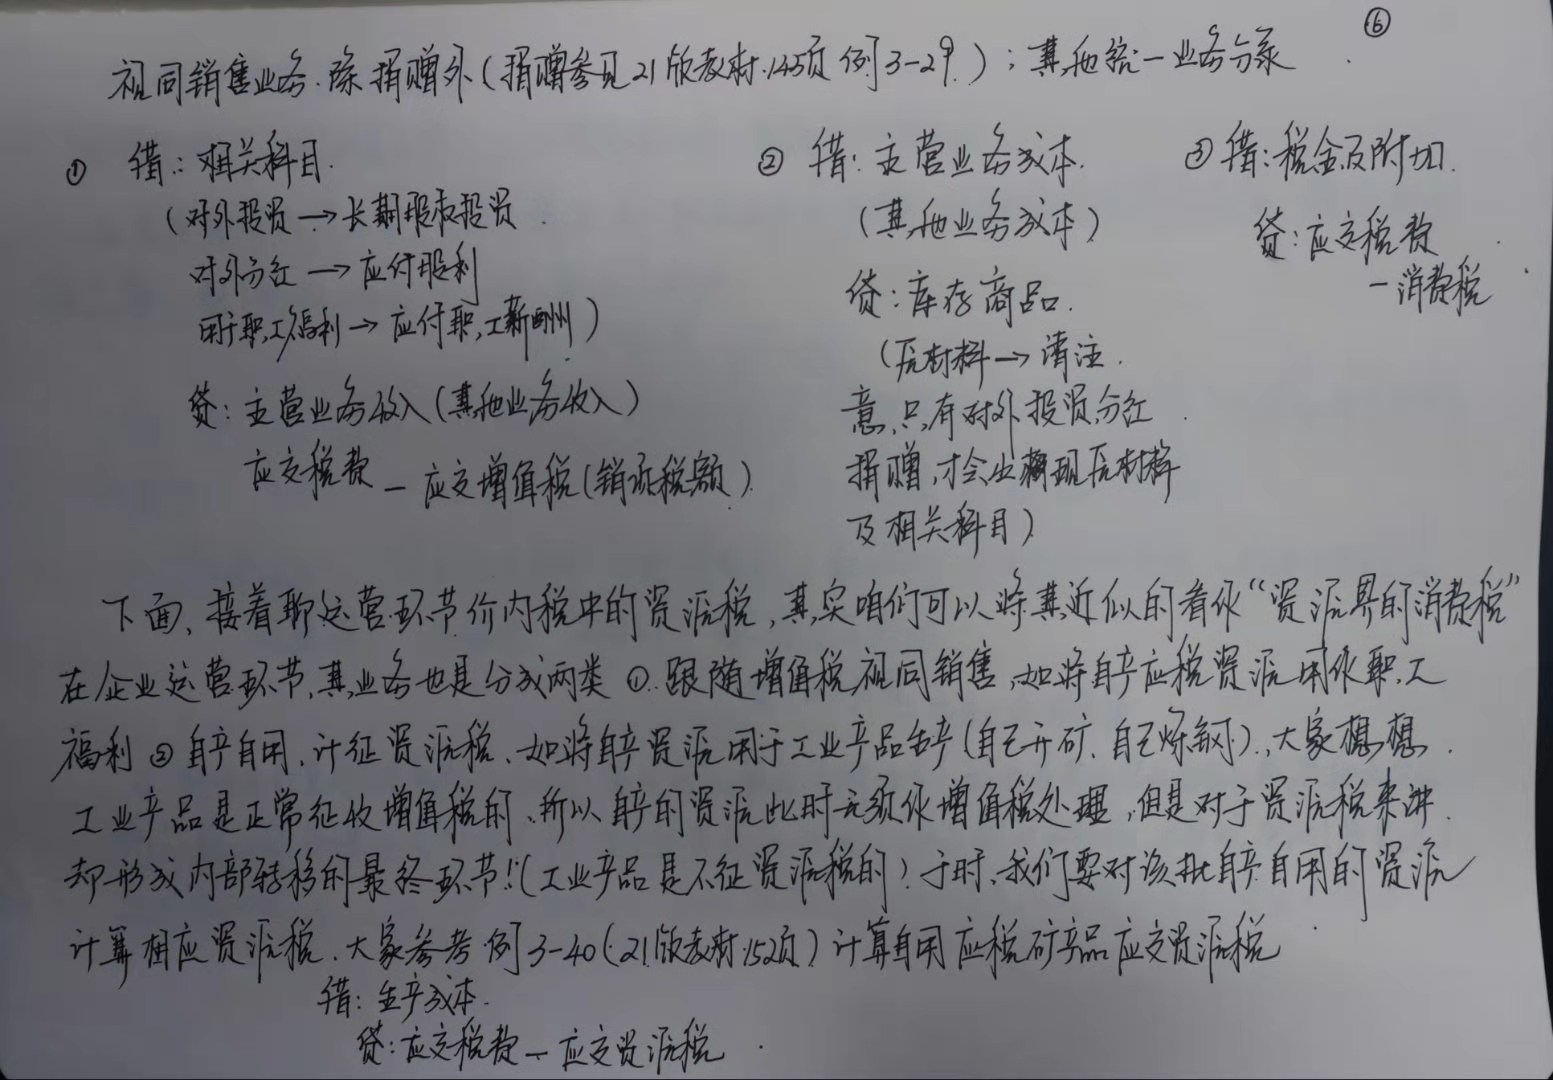 ⑥
视同销售业务.除捐赠外(捐赠参见21版教材.145页 例3-29.);其他统一业务分录
① 借:相关科目.
(对外投资→长期股权投资
对外分红→应付股利
用于职工福利→应付职工薪酬)
贷:主营业务收入(其他业务收入)
应交税费-应交增值税(销项税额)
② 借:主营业务成本.
(其他业务成本)
贷:库存商品.
(原材料→请注
意,只有对外投资分红
捐赠,才会出现原材料
及相关科目)
③ 借:税金及附加.
贷:应交税费
-消费税
下面,接着聊运营环节价内税中的资源税,其实咱们可以将其近似的看作“资源界的消费税”
在企业运营环节,其业务也是分成两类 ①.跟随增值税视同销售,如将自产应税资源用作职工
福利 ②自产自用,计征资源税、如将自产资源用于工业产品生产(自己开矿、自己炼钢),大家想想.
工业产品是正常征收增值税的,所以自产的资源此时无须作增值税处理,但是对于资源税来讲.
却形成内部转移的最终环节!(工业产品是不征资源税的)于时、我们要对该批自产自用的资源
计算相应资源税.大家参考例3-40(21版教材152页)计算自用应税矿产品应交资源税
借:生产成本.
贷:应交税费-应交资源税